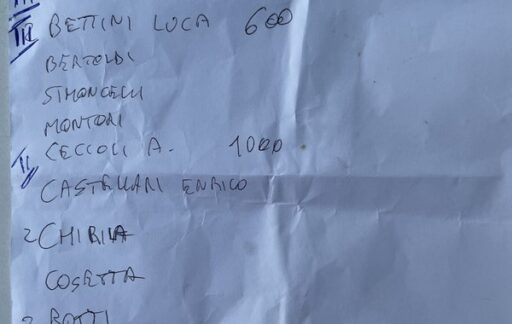 III BETTINI LUCA 600
BERTOLDI
SIMONCELLI
MONTORI
II CECCOLI A. 1000
CASTELLANI ENRICO
2 CHIRILA
COSETTA
2 BOTTI